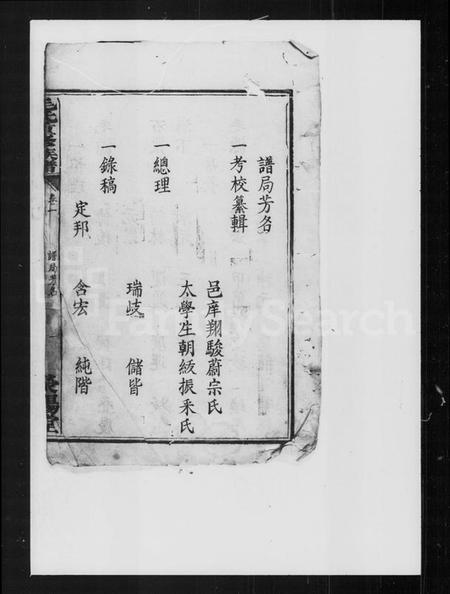 譜局芳名
一考校纂輯
邑庠翔駿蔚宗氏
太學生朝紱振采氏
一總理
瑞岐 儲皆
一錄稿
定邦 含宏 純階
卷一
譜局芳名
FamilySearch